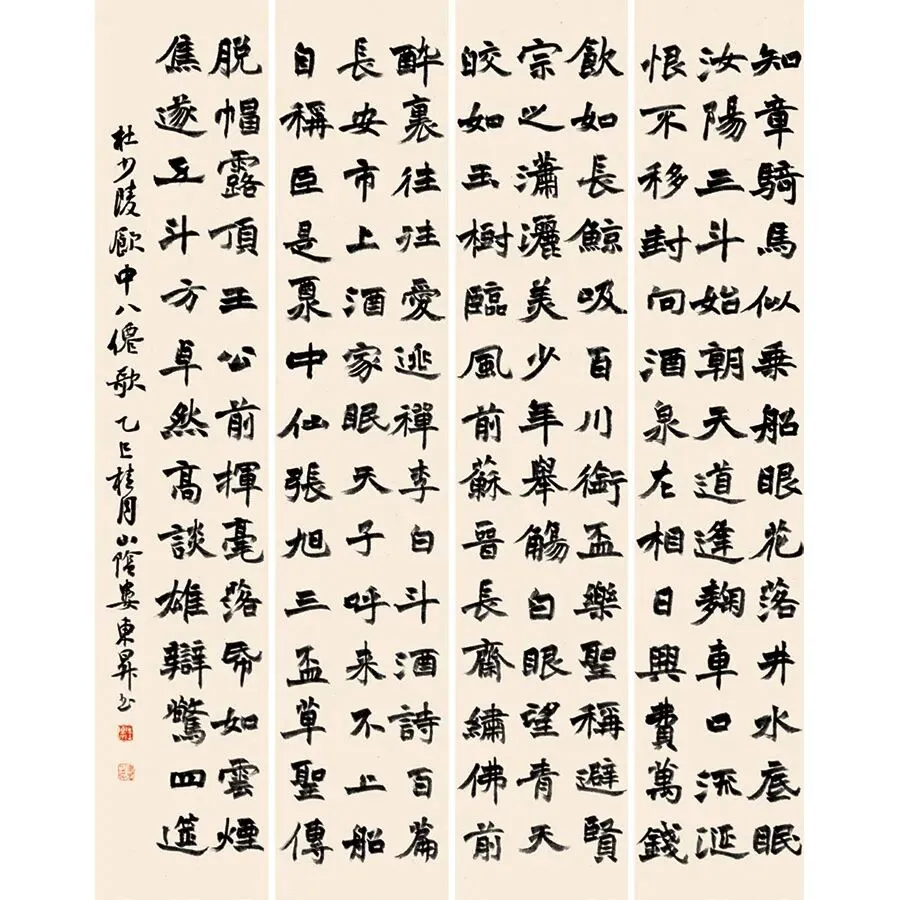 知章騎馬似乗船眼花落井水底眠
汝陽三斗始朝天道逢麹車口流涎
恨不移封向酒泉左相日興費萬錢
飲如長鯨吸百川銜盃樂聖稱避賢
宗之瀟灑美少年舉觴白眼望青天
皎如玉樹臨風前蘇晉長齋繡佛前
醉裏往往愛逃禪李白斗酒詩百篇
長安市上酒家眠天子呼来不上船
自稱臣是酒中仙張旭三盃草聖傳
脱帽露頂王公前揮毫落帋如雲煙
焦遂五斗方卓然高談雄辯驚四筵
杜少陵飲中八僊歌 乙巳桂月山陰婁東昇书